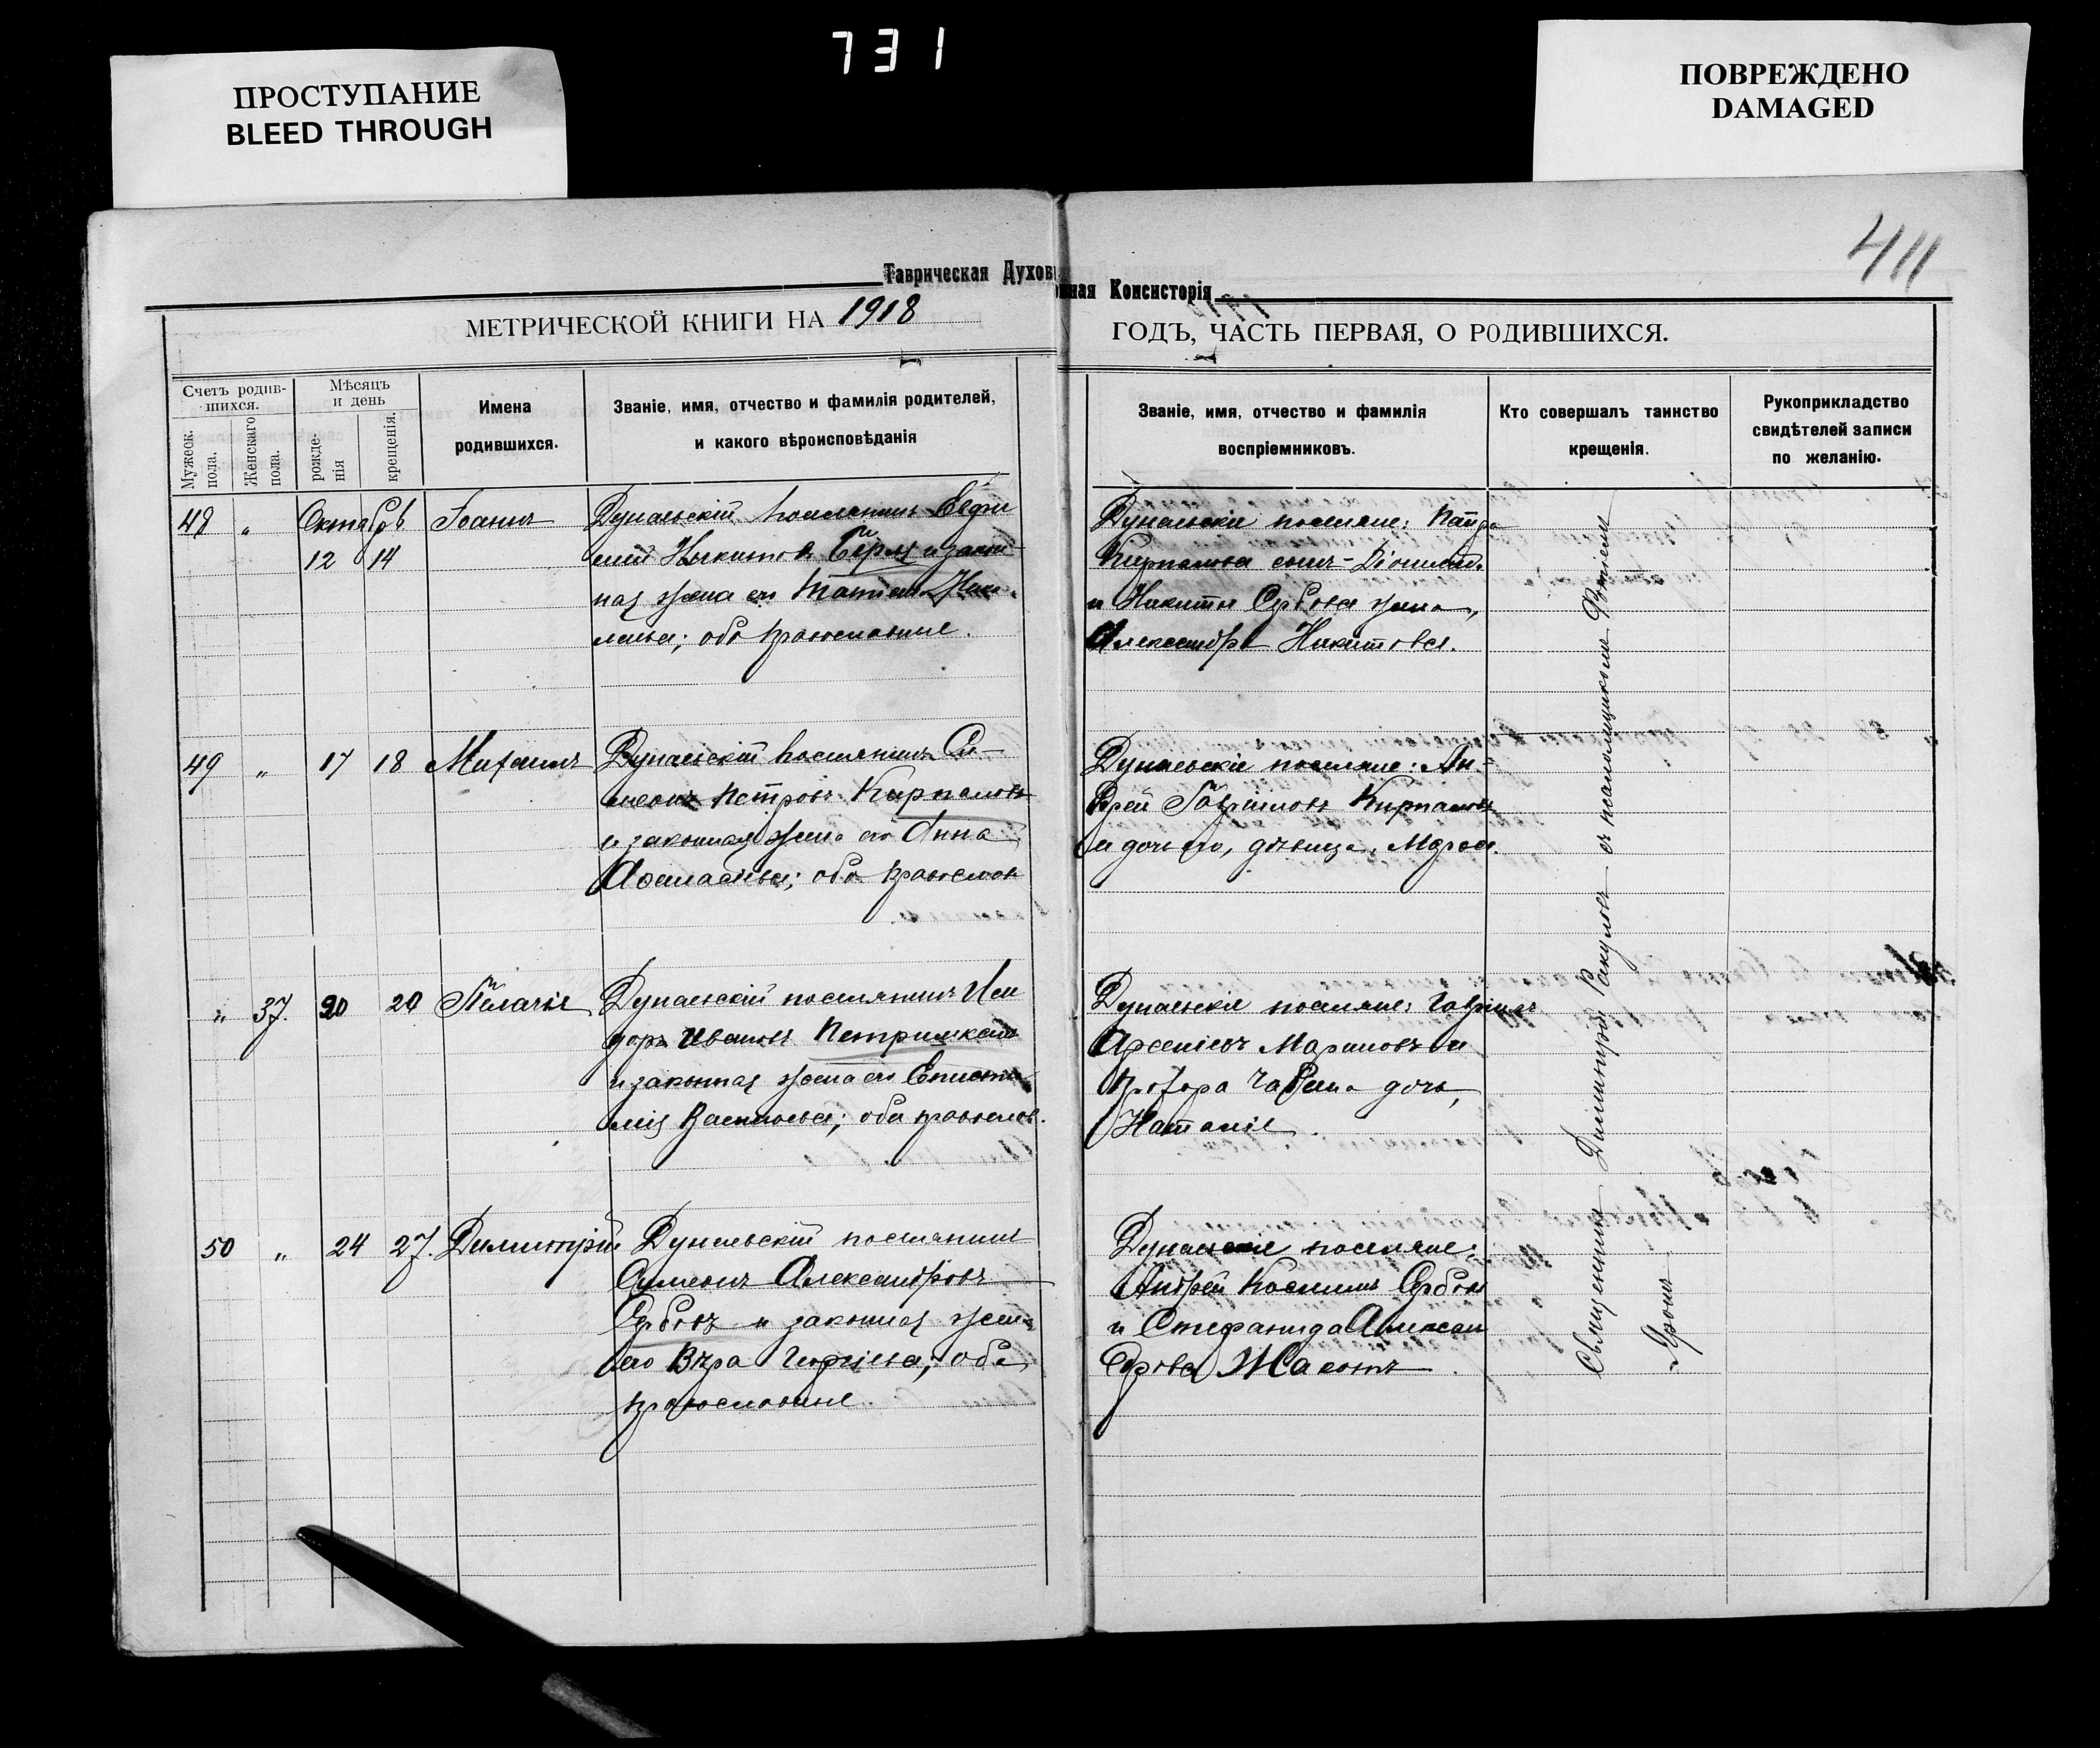 731
ПРОСТУПАНИЕ
BLEED THROUGH
ПОВРЕЖДЕНО
DAMAGED
411
Таврическая Духовная Консисторія
МЕТРИЧЕСКОЙ КНИГИ НА 1918
ГОДЪ, ЧАСТЬ ПЕРВАЯ, О РОДИВШИХСЯ.
Счетъ родив-
шихся.
Мужеск.
пола.
Женскаго
пола.
Мѣсяцъ
и день
рожде-
нія
крещенія.
Имена
родившихся.
Званіе, имя, отчество и фамилія родителей,
и какого вѣроисповѣданія
Званіе, имя, отчество и фамилія
воспріемниковъ.
Кто совершалъ таинство
крещенія.
Рукоприкладство
свидѣтелей записи
по желанію.
48 " Октябрь Іоаннъ Дунаевскій поселянинъ Евфи
12 14
мій Никитовъ и закон-
ная жена его
; оба православные.
Дунаевскіе поселяне:
Кирпалова сынъ-
и Никиты Сербова жена,
Александра Никитова.
49 " 17 18 Михаилъ Дунаевскій поселянинъ Си-
меонъ Петровъ Кирпаловъ
и законная жена его Анна
Афанасьева; оба православ
Дунаевскіе поселяне: Ан-
дрей Гавріиловъ Кирпаловъ
и дочь его, дѣвица, Марія.
" 37. 20 20 Пелагія Дунаевскій поселянинъ Иси
доръ Ивановъ
и законная жена его Еписти-
мія Васильева; оба православ.
Дунаевскіе поселяне: Гавріилъ
Арсеніевъ Мариновъ и
Прохора дочь,
Наталія.
50 " 24 27. Димитрій Дунаевскій поселянинъ
Симеонъ Александровъ
Сербовъ и законная жена
его Вѣра Георгіева; оба
православные.
Дунаевскіе поселяне:
Андрей Косминъ Сербовъ
и Стефанида Алексан
дрова
Священникъ Димитрій съ псаломщикомъ